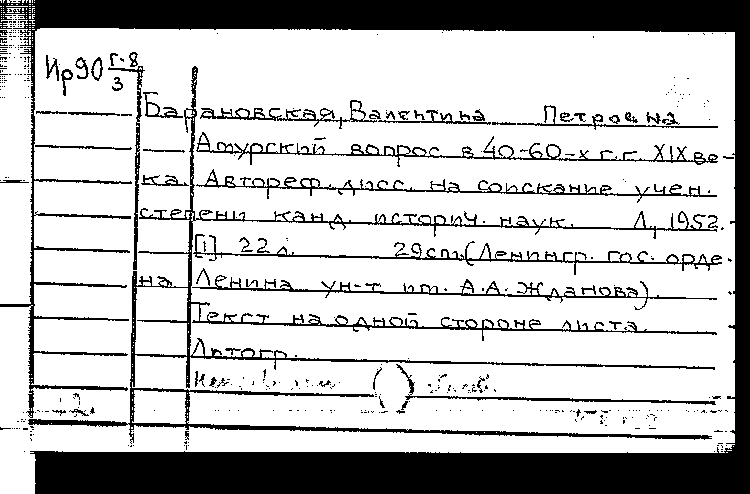 Ир90 г-8
3
Барановская, Валентина Петровна
Амурский вопрос в 40-60-х г.г. XIX ве-
ка. Автореф. дисс. на соискание учен.
степени канд. историч. наук. Л., 1952.
[1], 22 л. 29см. (Ленингр. гос. орде-
на Ленина ун-т им. А.А. Жданова).
Текст на одной стороне листа.
Литогр.